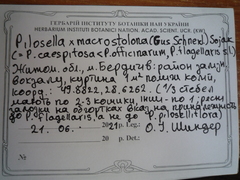 ГЕРБАРІЙ ІНСТИТУТУ БОТАНІКИ НАН УКРАЇНИ
HERBARIUM INSTITUTI BOTANICI NATION. ACAD. SCIENT. UCR. (KW)
Pilosella x macrostolona (Gus Schneid.) Soják
(= P. caespitosa x P. officinarum, P. flagellaris s.l.)
Житом. обл., м. Бердичів: район залізн.
вокзалу, куртина 1 м² поміж колій,
коорд.: 49.8822, 28.6262. (1/3 стебел
мають по 2-3 кошики, інші - по 1; рясні
залозки на обгортках вказ. на приналежність
до P. flagellaris, а не до P. piloselliflora)
21. 06. 2021 р. Leg.: О. І. Шиндер
20 р. Det.: